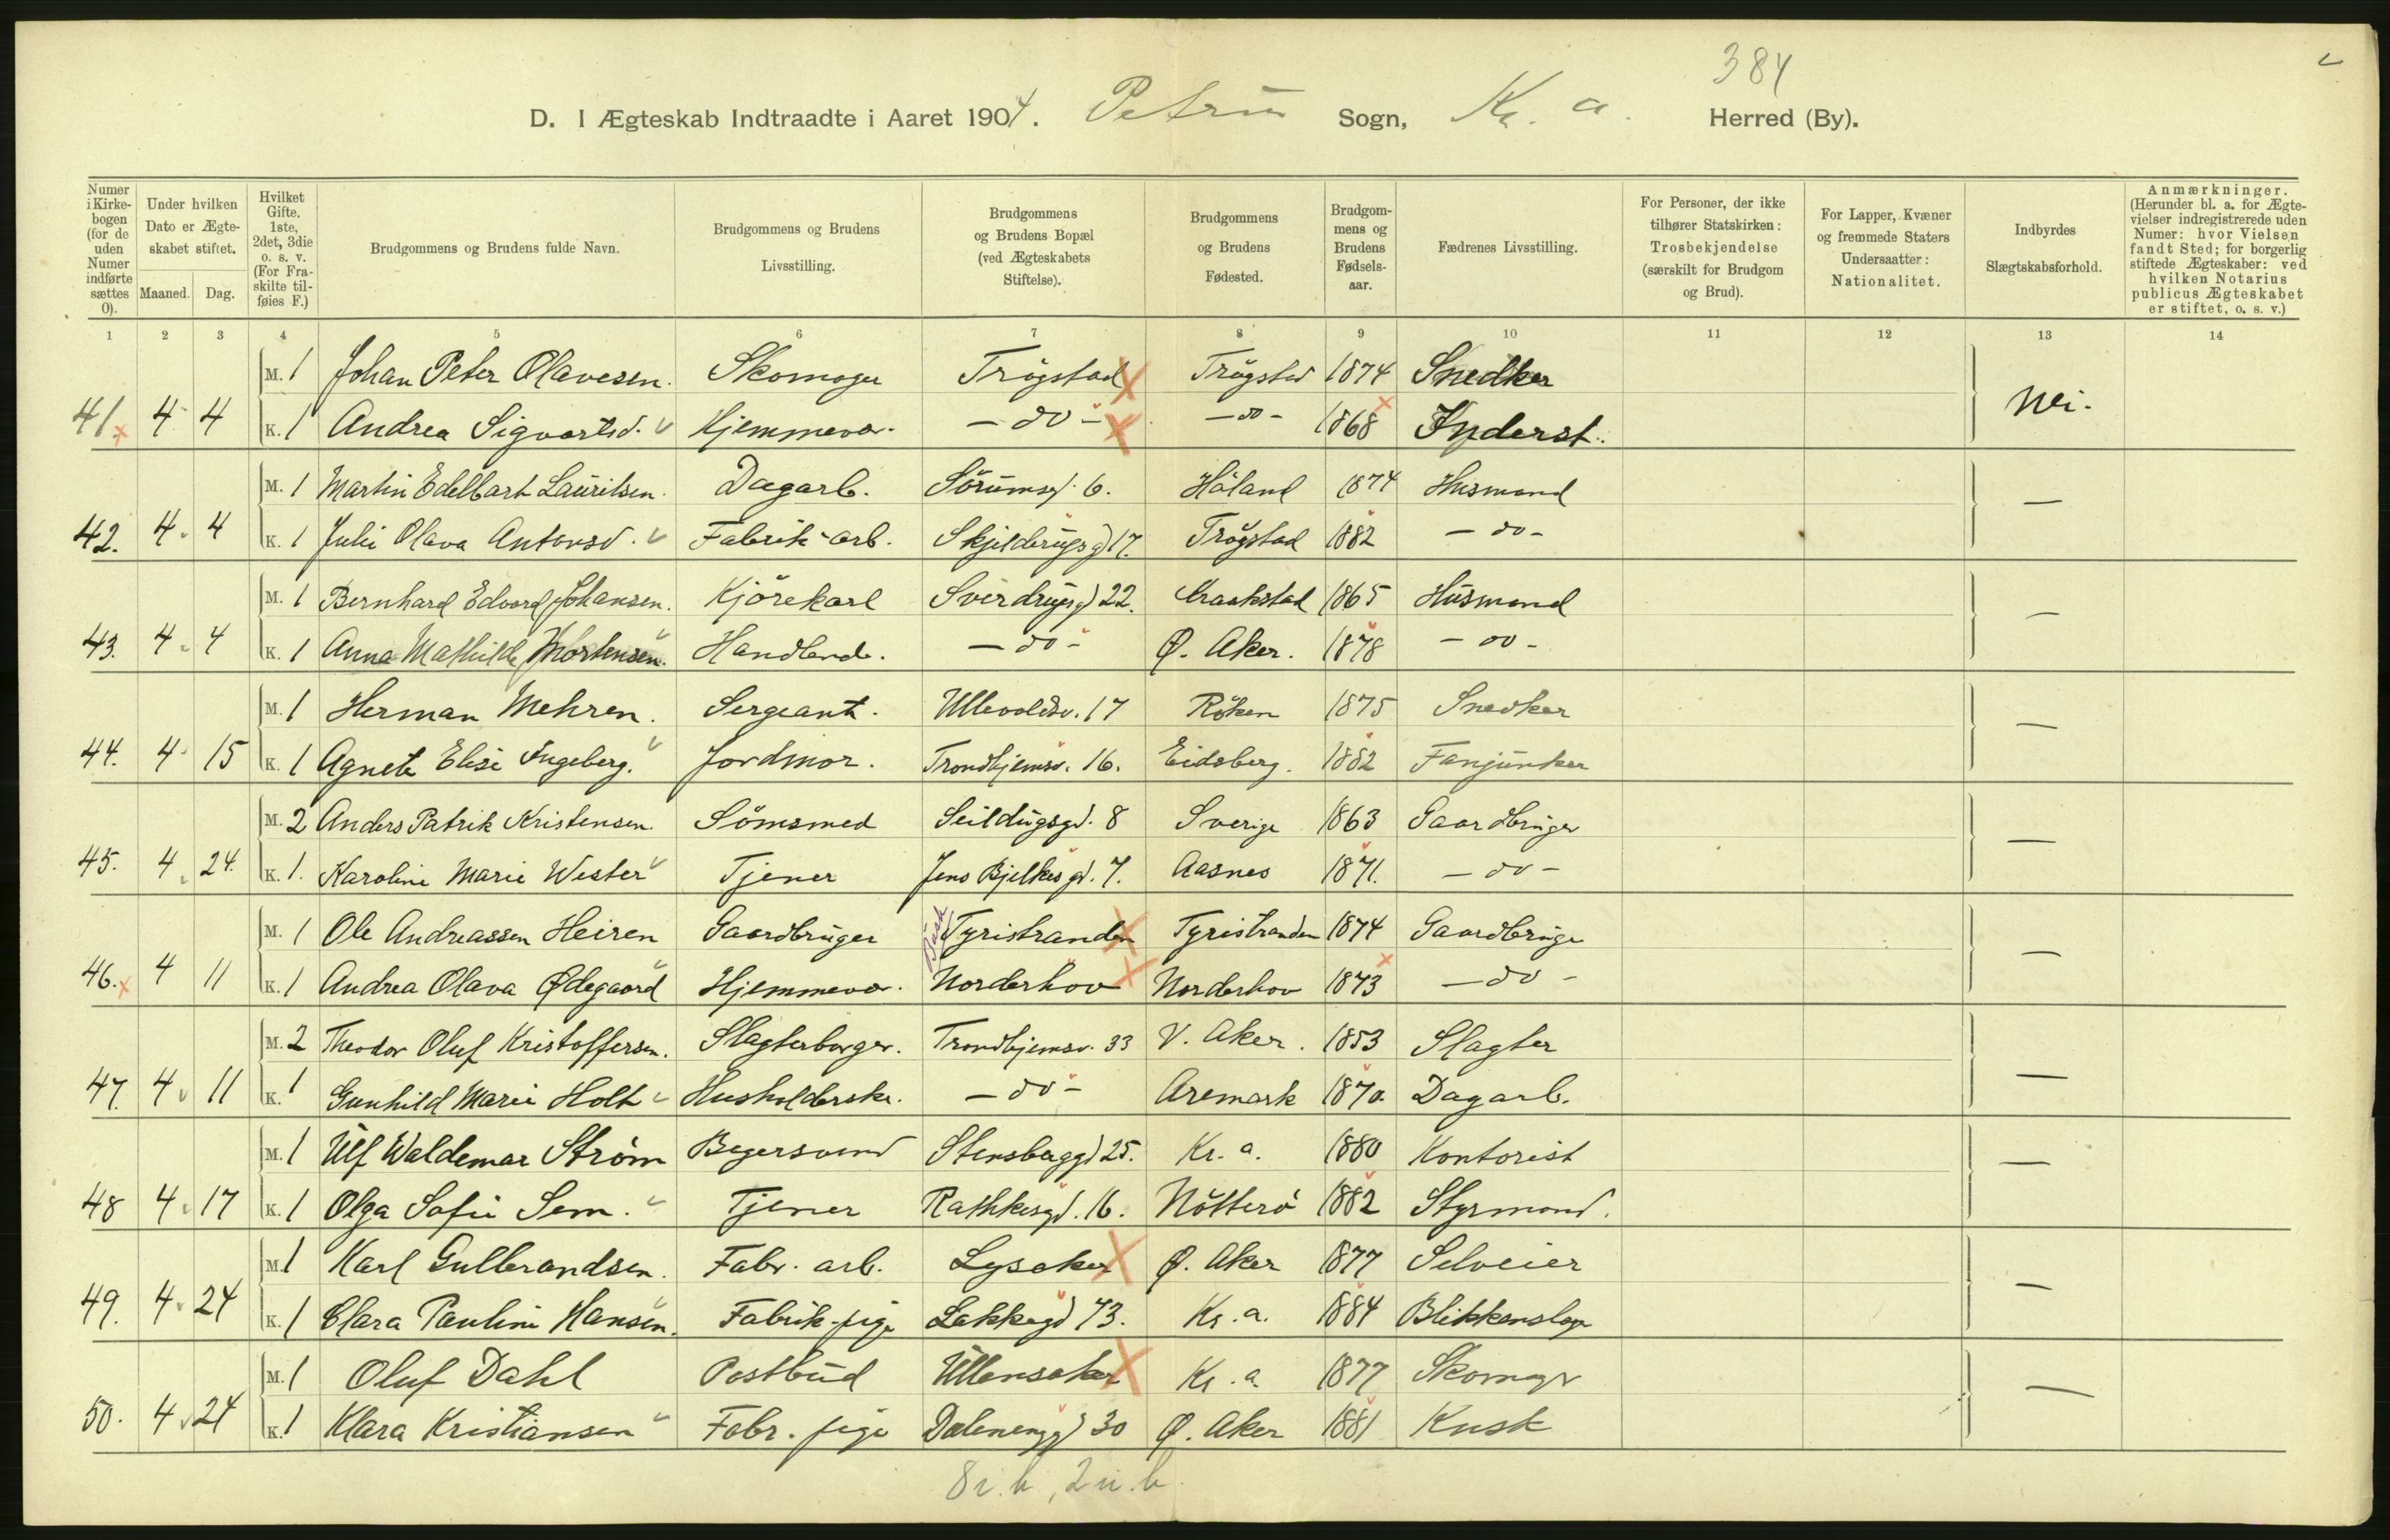 384
D. I Ægteskab Indtraadte i Aaret 1904. Petrus Sogn, Kr. a. Herred (By).
Numer i Kirkebogen (for de uden Numer indførte sættes 0). | Under hvilken Dato er Ægteskabet stiftet. Maaned. Dag. | Hvilket Gifte. 1ste, 2det, 3die o. s. v. (For Fraskilte tilføies F.) | Brudgommens og Brudens fulde Navn. | Brudgommens og Brudens Livsstilling. | Brudgommens og Brudens Bopæl (ved Ægteskabets Stiftelse). | Brudgommens og Brudens Fødested. | Brudgommens og Brudens Fødselsaar. | Fædrenes Livsstilling. | For Personer, der ikke tilhører Statskirken: Trosbekjendelse (særskilt for Brudgom og Brud). | For Lapper, Kvæner og fremmede Staters Undersaatter: Nationalitet. | Indbyrdes Slægtskabsforhold. | Anmærkninger. (Herunder bl. a. for Ægtevielser indregistrerede uden Numer: hvor Vielsen fandt Sted; for borgerlig stiftede Ægteskaber: ved hvilken Notarius publicus Ægteskabet er stiftet, o. s. v.)
1 2 3 4 5 6 7 8 9 10 11 12 13 14
M. 1 Johan Peter Olavesen. Skomager Trögstad Trögstad 1874 Snedker
41. 4 4 K. 1 Andrea Sigvartsd. Hjemmevær. - do - - do - 1868 Inderst. Nei.
M. 1 Martin Edelbart Lauritsen. Dagarb. Sörumsgd. 6. Höland 1874 Husmand
42. 4 4 K. 1 Julie Olava Antonsd. Fabrik-arb. Skjeldrupsgd 17. Trögstad 1882 - do - —
M. 1 Bernhard Edvard Johansen. Kjörekarl Sverdrupsgd 22. Kraakstad 1865 Husmand
43. 4 4 K. 1 Anna Mathilde Mortensen. Handlende. - do - Ø. Aker. 1878 - do - —
M. 1 Herman Mehren. Sergeant. Ullevoldsv. 17 Röken 1875 Snedker
44. 4 15 K. 1 Agnete Elise Ingeberg. Jordmor. Trondhjemsv. 16. Eidsberg. 1882 Fanjunker —
M. 2 Anders Patrik Kristensen. Sömsmed Seildugsgd. 8 Sverige 1863 Gaardbruger
45. 4 24. K. 1. Karoline Marie Wester Tjener Jens Bjelkes gd. 7. Aasnes 1871. - do - —
M. 1 Ole Andreassen Heiren Gaardbruger Tyristranden Tyristranden 1874 Gaardbruger
46. 4 11 K. 1 Andrea Olava Ødegaard Hjemmevær. Norderhov Norderhov 1873 - do - —
M. 2 Theodor Oluf Kristoffersen. Slagterborger. Trondhjemsv. 33 V. Aker. 1853 Slagter
47. 4 11 K. 1 Gunhild Marie Holt Husholderske. - do - Aremark 1870. Dagarb. —
M. 1 Ulf Waldemar Ström Bagersvend Stensberggd 25. Kr. a. 1880 Kontorist
48 4 17 K. 1 Olga Sofie Sem. Tjener Rathkesgd. 16. Nötterö 1882 Styrmand. —
M. 1 Karl Gulbrandsen. Fabr. arb. Lysaker Ø. Aker 1877 Selveier
49. 4 24 K. 1 Clara Pauline Hansen. Fabrik-pige Lakkegd 73. Kr. a. 1884 Blikkenslager —
M. 1 Oluf Dahl Postbud Ullensaker Kr. a. 1877 Skomager
50. 4 24 K. 1 Klara Kristiansen Fabr. pige Dælenenggd 30 Ø. Aker 1881 Kusk —
8 i. b., 2 u. b.